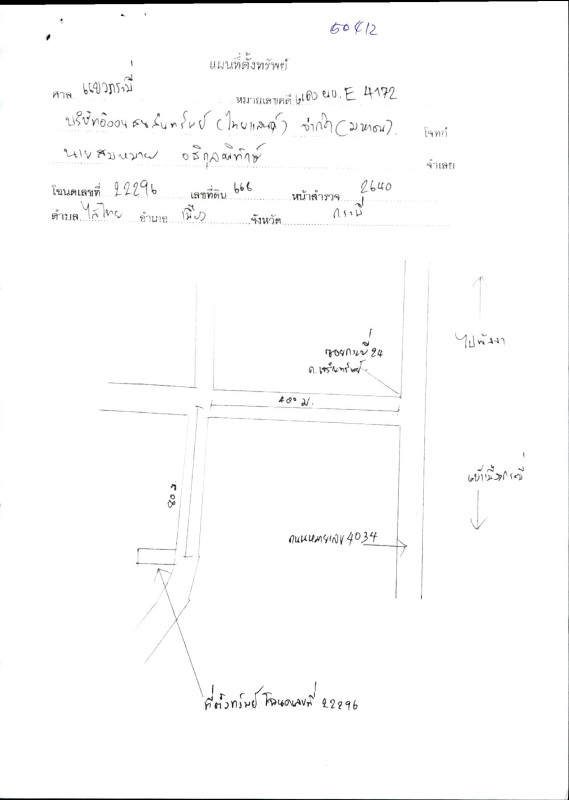 แผนที่ตั้งทรัพย์
ศาล แขวงกระบี่ หมายเลขคดี ผบ.E 4172
บริษัทอิออน ธนสินทรัพย์ (ไทยแลนด์) จำกัด (มหาชน). โจทก์
นายสมหมาย จำเลย
โฉนดเลขที่ 22296 เลขที่ดิน 666 หน้าสำรวจ 2640
ตำบล ไสไทย อำเภอ เมือง จังหวัด กระบี่
ไปพังงา
ซอยกระบี่ 24
400 ม.
เข้าเมืองกระบี่
80 ม
ถนนหมายเลข 4034
ที่ตั้งทรัพย์ โฉนดเลขที่ 22296